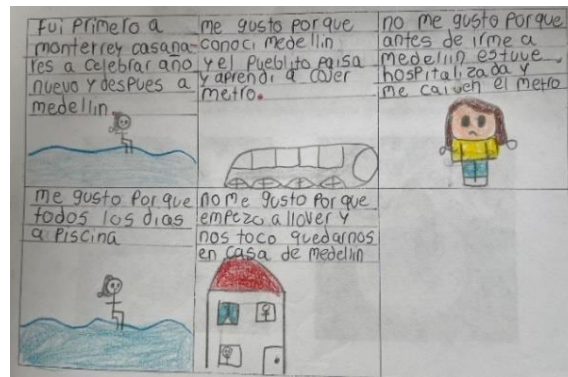 fui primero a
monterrey casana-
res a celebrar año
nuevo y despues a
medellin.
me gusto porque
conoci medellin
y el pueblito paisa
y aprendi a cojer
metro.
no me gusto porque
antes de irme a
medellin estuve
hospitalizada y
me cai en el metro
me gusto porque
todos los dias
a piscina
no me gusto porque
empezo a llover y
nos toco quedarnos
en casa de medellin